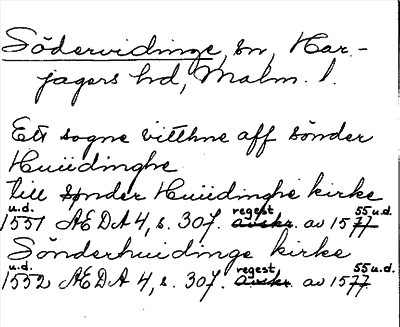 Södervidinge, sn, Har-
jagers hd, Malm. l.
Ett sogne vitthne aff sönder
Huiidinghe
Till sönder Huiidinghe kirke
u.d. 1551 ÆDA 4, s. 307. regest avskr. av 1577 55 u.d.
Sönderhuidinge kirke
u.d. 1552 ÆDA 4, s. 307. regest avskr. av 1577 55 u.d.